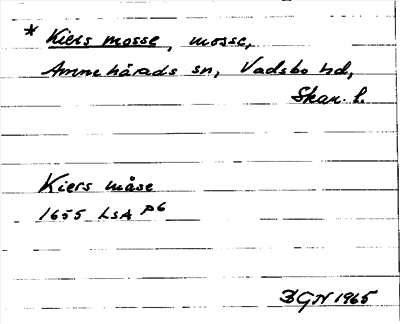 * Kiers mosse, mosse,
Amnehärads sn, Vadsbo hd,
Skar. l.
Kiers måse
1655 LSA P6
BGN 1965